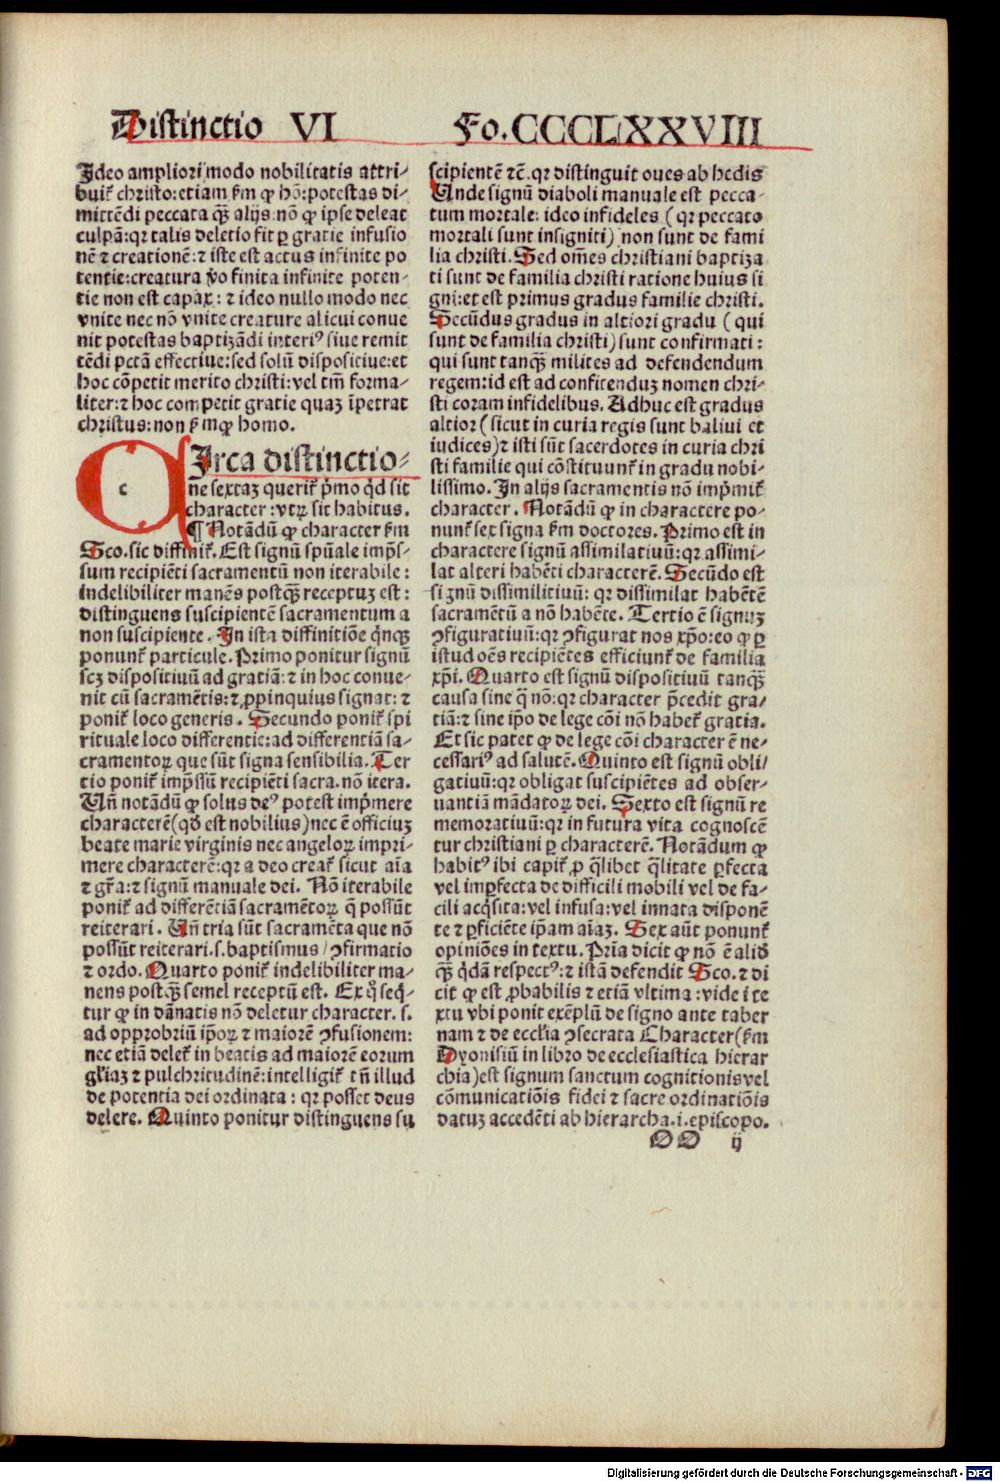 Distinctio VI Fo.CCCCLXXVIII
Ideo ampliori modo nobilitatis attri⸗
buit᷑ christo: etiam ẜm ꝙ hō: potestas di⸗
mittēdi peccata qȝ̄ alijs: nō ꝙ ipse deleat
culpā: qꝛ talis deletio fit ꝑ gratie infusio
nē ⁊ creationē: ⁊ iste est actus infinite po
tentie: creatura v̊o finita infinite poten⸗
tie non est capax: ⁊ ideo nullo modo nec
vnite nec nō vnite creature alicui conue
nit potestas baptizādi interiꝰ siue remit
tēdi pctā effectiue: sed solū dispositiue: et
hoc cōpetit merito christi: vel tm̄ forma⸗
liter: ⁊ hoc competit gratie quaȝ īpetrat
christus: non ẜmꝙ homo.
c
CIrca distinctio⸗
ne sextaȝ querit᷑ pͥmo qͥd sit
character: vtꝝ sit habitus.
¶ Notādū ꝙ character ẜm
Sco. sic diffinit᷑. Est signū spūale imp̄s⸗
sum recipiēti sacramentū non iterabile:
indelibiliter manēs postqȝ̄ receptuȝ est:
distinguens suscipientē sacramentum a
non suscipiente. In ista diffinitiōe qͥnqȝ
ponunt᷑ particule. Primo ponitur signū
scȝ dispositiuū ad gratiā: ⁊ in hoc conue⸗
nit cū sacramētis: ⁊ ꝓpinquius signat: ⁊
ponit᷑ loco generis. Secundo ponit᷑ spi
rituale loco differentie: ad differentiā sa⸗
cramentoꝝ que sūt signa sensibilia. Ter
tio ponit᷑ imp̄ssū recipiēti sacra. nō itera.
Un̄ notādū ꝙ solus deꝰ potest imp̄mere
characterē (qd̓ est nobilius) nec ē officiuȝ
beate marie virginis nec angeloꝝ impri⸗
mere characterē: qꝛ a deo creat᷑ sicut aīa
⁊ gr̄a: ⁊ signū manuale dei. Nō iterabile
ponit᷑ ad differētiā sacramētoꝝ q̄ possūt
reiterari. Un̄ tria sūt sacramēta que nō
possūt reiterari. s. baptismus / ꝯfirmatio
⁊ ordo. Quarto ponit᷑ indelibiliter ma⸗
nens postqȝ̄ semel receptū est. Ex qͦ seq̄⸗
tur ꝙ in dānatis nō deletur character. s.
ad opprobriū ip̄oꝝ ⁊ maiorē ꝯfusionem:
nec etiā delet᷑ in beatis ad maiorē eorum
gl̓iaȝ ⁊ pulchritudinē: intelligit᷑ tn̄ illud
de potentia dei ordinata: qꝛ posset deus
delere. Quinto ponitur distinguens su
scipientē ⁊c̄. qꝛ distinguit oues ab hedis
Unde signū diaboli manuale est pecca⸗
tum mortale: ideo infideles (qꝛ peccato
mortali sunt insigniti) non sunt de fami
lia christi. Sed om̄es christiani baptiza
ti sunt de familia christi ratione huius si
gni: et est primus gradus familie christi.
Secūdus gradus in altiori gradu (qui
sunt de familia christi) sunt confirmati:
qui sunt tanqȝ̄ milites ad defendendum
regem: id est ad confitenduȝ nomen chri⸗
sti coram infidelibus. Adhuc est gradus
altior (sicut in curia regis sunt baliui et
iudices) ⁊ isti sūt sacerdotes in curia chri
sti familie qui cōstituunt᷑ in gradu nobi⸗
lissimo. In alijs sacramentis nō imp̄mit᷑
character. Notādū ꝙ in charactere po⸗
nunt᷑ sex signa ẜm doctores. Primo est in
charactere signū assimilatiuū: qꝛ assimi⸗
lat alteri habēti characterē. Secūdo est
signū dissimilitiuū: qꝛ dissimilat habētē
sacramētū a nō habēte. Tertio ē signuȝ
ꝯfiguratiuū: qꝛ ꝯfigurat nos xp̄o: eo ꝙ ꝑ
istud oēs recipiētes efficiunt᷑ de familia
xp̄i. Quarto est signū dispositiuū tanqȝ̄
causa sine q̄ nō: qꝛ character p̄cedit gra⸗
tiā: ⁊ sine ip̄o de lege cōi nō habet᷑ gratia.
Et sic patet ꝙ de lege cōi character ē ne⸗
cessariꝰ ad salutē. Quinto est signū obli⸗
gatiuū: qꝛ obligat suscipiētes ad obser⸗
uantiā mādatoꝝ dei. Sexto est signū re
memoratiuū: qꝛ in futura vita cognoscē
tur christiani ꝑ characterē. Notādum ꝙ
habitꝰ ibi capit᷑ ꝓ qͣlibet qͣlitate ꝑfecta
vel imꝑfecta de difficili mobili vel de fa⸗
cili acqͥsita: vel infusa: vel innata disponē
te ⁊ ꝑficiēte ip̄am aīaȝ. Sex aūt ponunt᷑
opiniōes in textu. Pria dicit ꝙ nō ē aliḋ
qȝ̄ qͥdā respectꝰ: ⁊ istā defendit Sco. ⁊ di
cit ꝙ est ꝓbabilis ⁊ etiā vltima: vide ī te
xtu vbi ponit exēplū de signo ante taber
nam ⁊ de eccl̓ia ꝯsecrata Character (ẜm
Dyonisiū in libro de ecclesiastica hierar
chia) est signum sanctum cognitionis vel
cōmunicatiōis fidei ⁊ sacre ordinatiōis
datuȝ accedēti ab hierarcha. i. episcopo.
OO ij
Digitalisierung gefördert durch die Deutsche Forschungsgemeinschaft - DFG